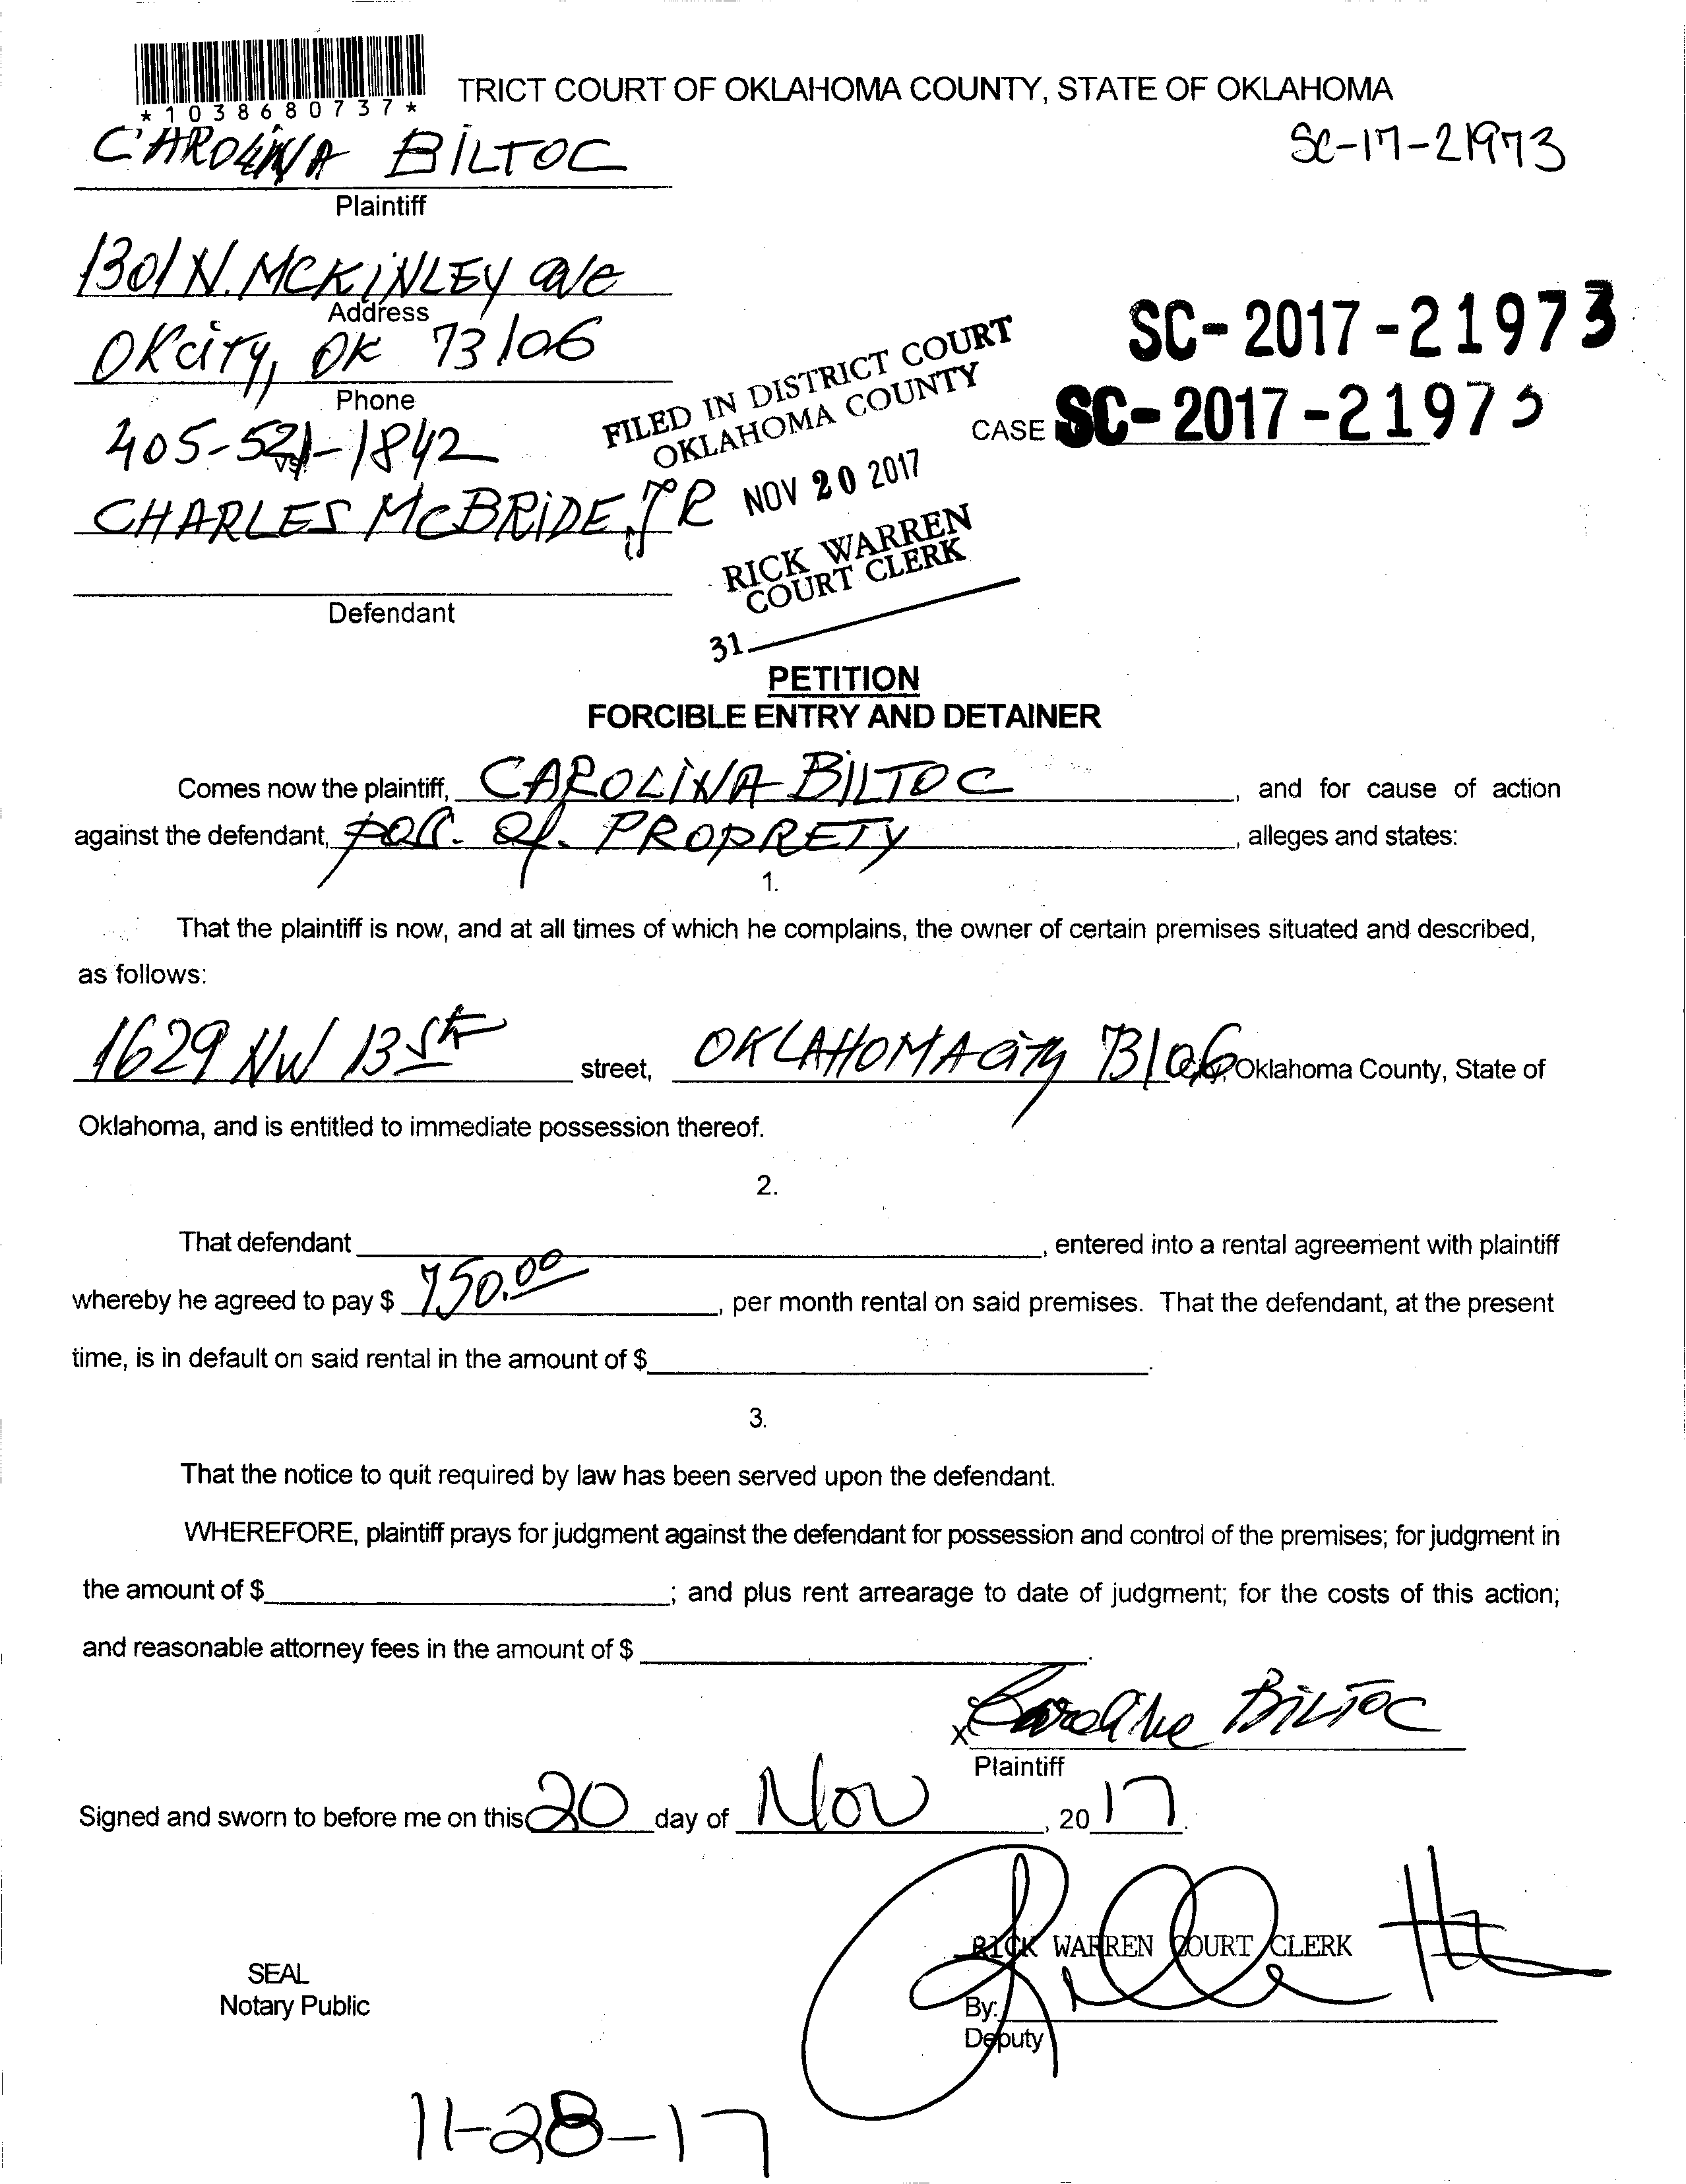 *1038680737*
TRICT COURT OF OKLAHOMA COUNTY, STATE OF OKLAHOMA
CAROLINA BILTOC
SC-17-21973
Plaintiff
1301 N. MCKINLEY ave
Address
OKCITY, OK 73106
Phone
405-521-1842
vs.
CHARLES MCBRIDE, JR
Defendant
SC-2017-21973
CASE SC-2017-21973
FILED IN DISTRICT COURT
OKLAHOMA COUNTY
NOV 20 2017
RICK WARREN
COURT CLERK
31
PETITION
FORCIBLE ENTRY AND DETAINER
Comes now the plaintiff, CAROLINA BILTOC, and for cause of action
against the defendant, pos. of. PROPRETY, alleges and states:
1.
That the plaintiff is now, and at all times of which he complains, the owner of certain premises situated and described,
as follows:
1629 NW 13 St street, OKLAHOMA City 73106 City, Oklahoma County, State of
Oklahoma, and is entitled to immediate possession thereof.
2.
That defendant , entered into a rental agreement with plaintiff
whereby he agreed to pay $ 750.00, per month rental on said premises. That the defendant, at the present
time, is in default on said rental in the amount of $ .
3.
That the notice to quit required by law has been served upon the defendant.
WHEREFORE, plaintiff prays for judgment against the defendant for possession and control of the premises; for judgment in
the amount of $ ; and plus rent arrearage to date of judgment; for the costs of this action;
and reasonable attorney fees in the amount of $ .
x BILTOC
Plaintiff
Signed and sworn to before me on this 20 day of Nov, 20 17.
RICK WARREN COURT CLERK
SEAL
Notary Public
By:
Deputy
11-28-17